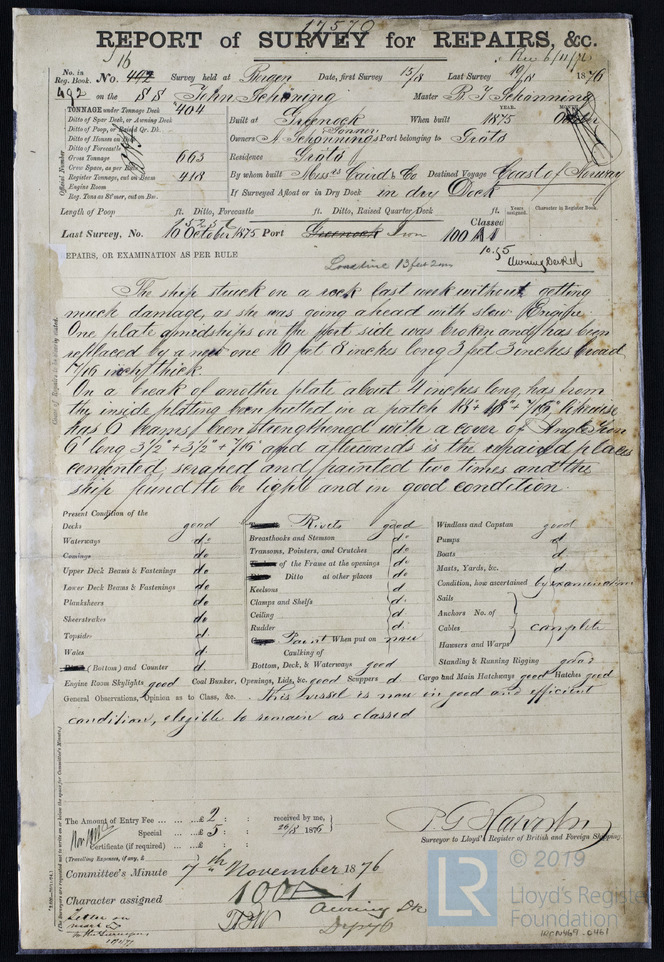 17570
REPORT of SURVEY for REPAIRS, &c.
16
Rec 6/11/76
No. in Reg. Book. No. 442 Survey held at Bergen Date, first Survey 15/8 Last Survey 19/8 1876
492 on the S S John Schöning Master B. T. Schönning
TONNAGE under Tonnage Deck 404
Ditto of Spar Deck, or Awning Deck
Ditto of Poop, or Raised Qr. Dk.
Ditto of Houses on Deck
Ditto of Forecastle
Gross Tonnage 663
Crew Space, as per
Register Tonnage, cut on Beam 418
Engine Room
Reg. Tons as Str, cut on Bm.
Official Number
Built at Greenock When built YEAR. 1875 MONTH. October
Owners A Schönnings Sonner Port belonging to Grotö
Residence Grotö
By whom built Messrs Caird & Co Destined Voyage Coast of Norway
If Surveyed Afloat or in Dry Dock in dry Dock
Length of Poop ft. Ditto, Forecastle ft. Ditto, Raised Quarter Deck ft. Years assigned. Character in Register Book.
Last Survey, No. 10 October 1875 Port Greenock Iron Classed 100 A1
10.75
Awning Decked
REPAIRS, OR EXAMINATION AS PER RULE
Loadline 13 feet 2
The ship struck on a rock last week without getting
much damage, as she was going ahead with slow Engine.
One plate amidships on the port side was broken and has been
replaced by a new one 10 feet 8 inches long 3 feet 3 inches broad
7/16 inch thick.
On a break of another plate about 4 inches long, has from
the inside plating been putted in a patch 18" + 18" + 7/16" likewise
has 6 beams been strengthened with a cover of Angle Iron
6' long 3½" + 3½" + 7/16" and afterwards is the repaired places
cemented, scraped and painted two times and the
ship found to be tight and in good condition.
Present Condition of the
Decks good
Waterways do
Comings do
Upper Deck Beams & Fastenings do
Lower Deck Beams & Fastenings do
Planksheers do
Sheerstrakes do
Topsides d.
Wales d.
(Bottom) and Counter d
Rivets good
Breasthooks and Stemson do
Transoms, Pointers, and Crutches do
of the Frame at the openings do
Ditto at other places do
Keelsons d.
Clamps and Shelfs d.
Ceiling d.
Rudder d.
Paint When put on now
Caulking of
Bottom, Deck, & Waterways good
Windlass and Capstan good
Pumps d
Boats d
Masts, Yards, &c. d.
Condition, how ascertained by examination
Sails
Anchors No. of
Cables
Hawsers and Warps
complete
Standing & Running Rigging good
Engine Room Skylights good Coal Bunker, Openings, Lids, &c. good Scuppers d Cargo and Main Hatchways good Hatches good
General Observations, Opinion as to Class, &c. This vessel is now in good and efficient
condition, eligible to remain as classed
The Amount of Entry Fee ... £ 2 : :
Special ... £ 5 : :
Certificate (if required) ... £
(Travelling Expenses, if any, £
received by me,
26/8 1876
Surveyor to Lloyd's Register of British and Foreign Shipping.
Committee's Minute 7th November 1876
Character assigned 100A1
Awning Dk
© 2019
LR
Lloyd's Register
Foundation